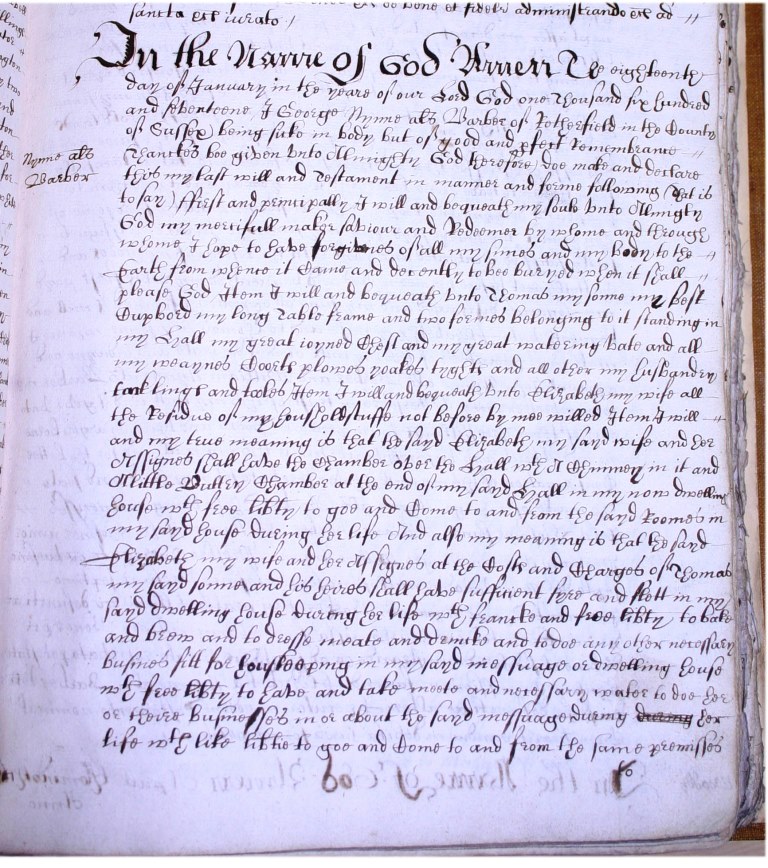 sancta etc iurato
In the Name of God Amen The eighteenth
day of January in the yeare of our Lord God one thousand six hundred
and seventeene, I George Nynne als Barber of Rotherfield in the County
of Sussex being sicke in body but of good and pfect Remembrance
Nynne als
Barber
thanckes bee given vnto Allmighty God therefore, doe make and declare
this my last will and Testament in manner and forme following (that is
to say) ffirst and principally I will and bequeath my soule vnto Allmigty
God my mercifull maker saviour and Redeemer by whome and through
whome I hope to have forgivnes of all my sinnes and my body to the
Earth from whence it Came and decently to bee buryed when it shall
please God Item I will and bequeath vnto Thomas my sonne my best
Cupbord my long Table frame and two formes belonging to it standing in
my Hall my great ioyned Chest and my great watering and all
my weaynes Coorts plowes yoakes tyghts and all other my husbandry
tacklings and tooles Item I will and bequeath vnto Elizabeth my wife all
the Residue of my housholdstuffe not before by mee willed Item I will
and my true meaning is that the sayd Elizabeth my sayd wife and her
Assignes shall have the Chamber over the Hall wth A Chimney in it and
A little Buttery Chamber at the end of my sayd Hall in my now dwelling
house wth free libty to goe and Come to and from the sayd Roomes in
my sayd house during her life And also my meaning is that the sayd
Elizabeth my wife and her Assignes at the Costs and Charges of Thomas
my sayd sonne and his heires shall have sufficient fyre and flott in my
sayd dwelling house during her life wth francke and free libty to bake
and brew and to dresse meate and drincke and to doe any other necessary
busines fitt for houskeeping in my sayd messuage or dwelling house
wth free libty to have and take meete and necessary water to doe her
or theire businesses in or about the sayd messuage during during her
life wth like libtie to goe and Come to and from the same premisses
to